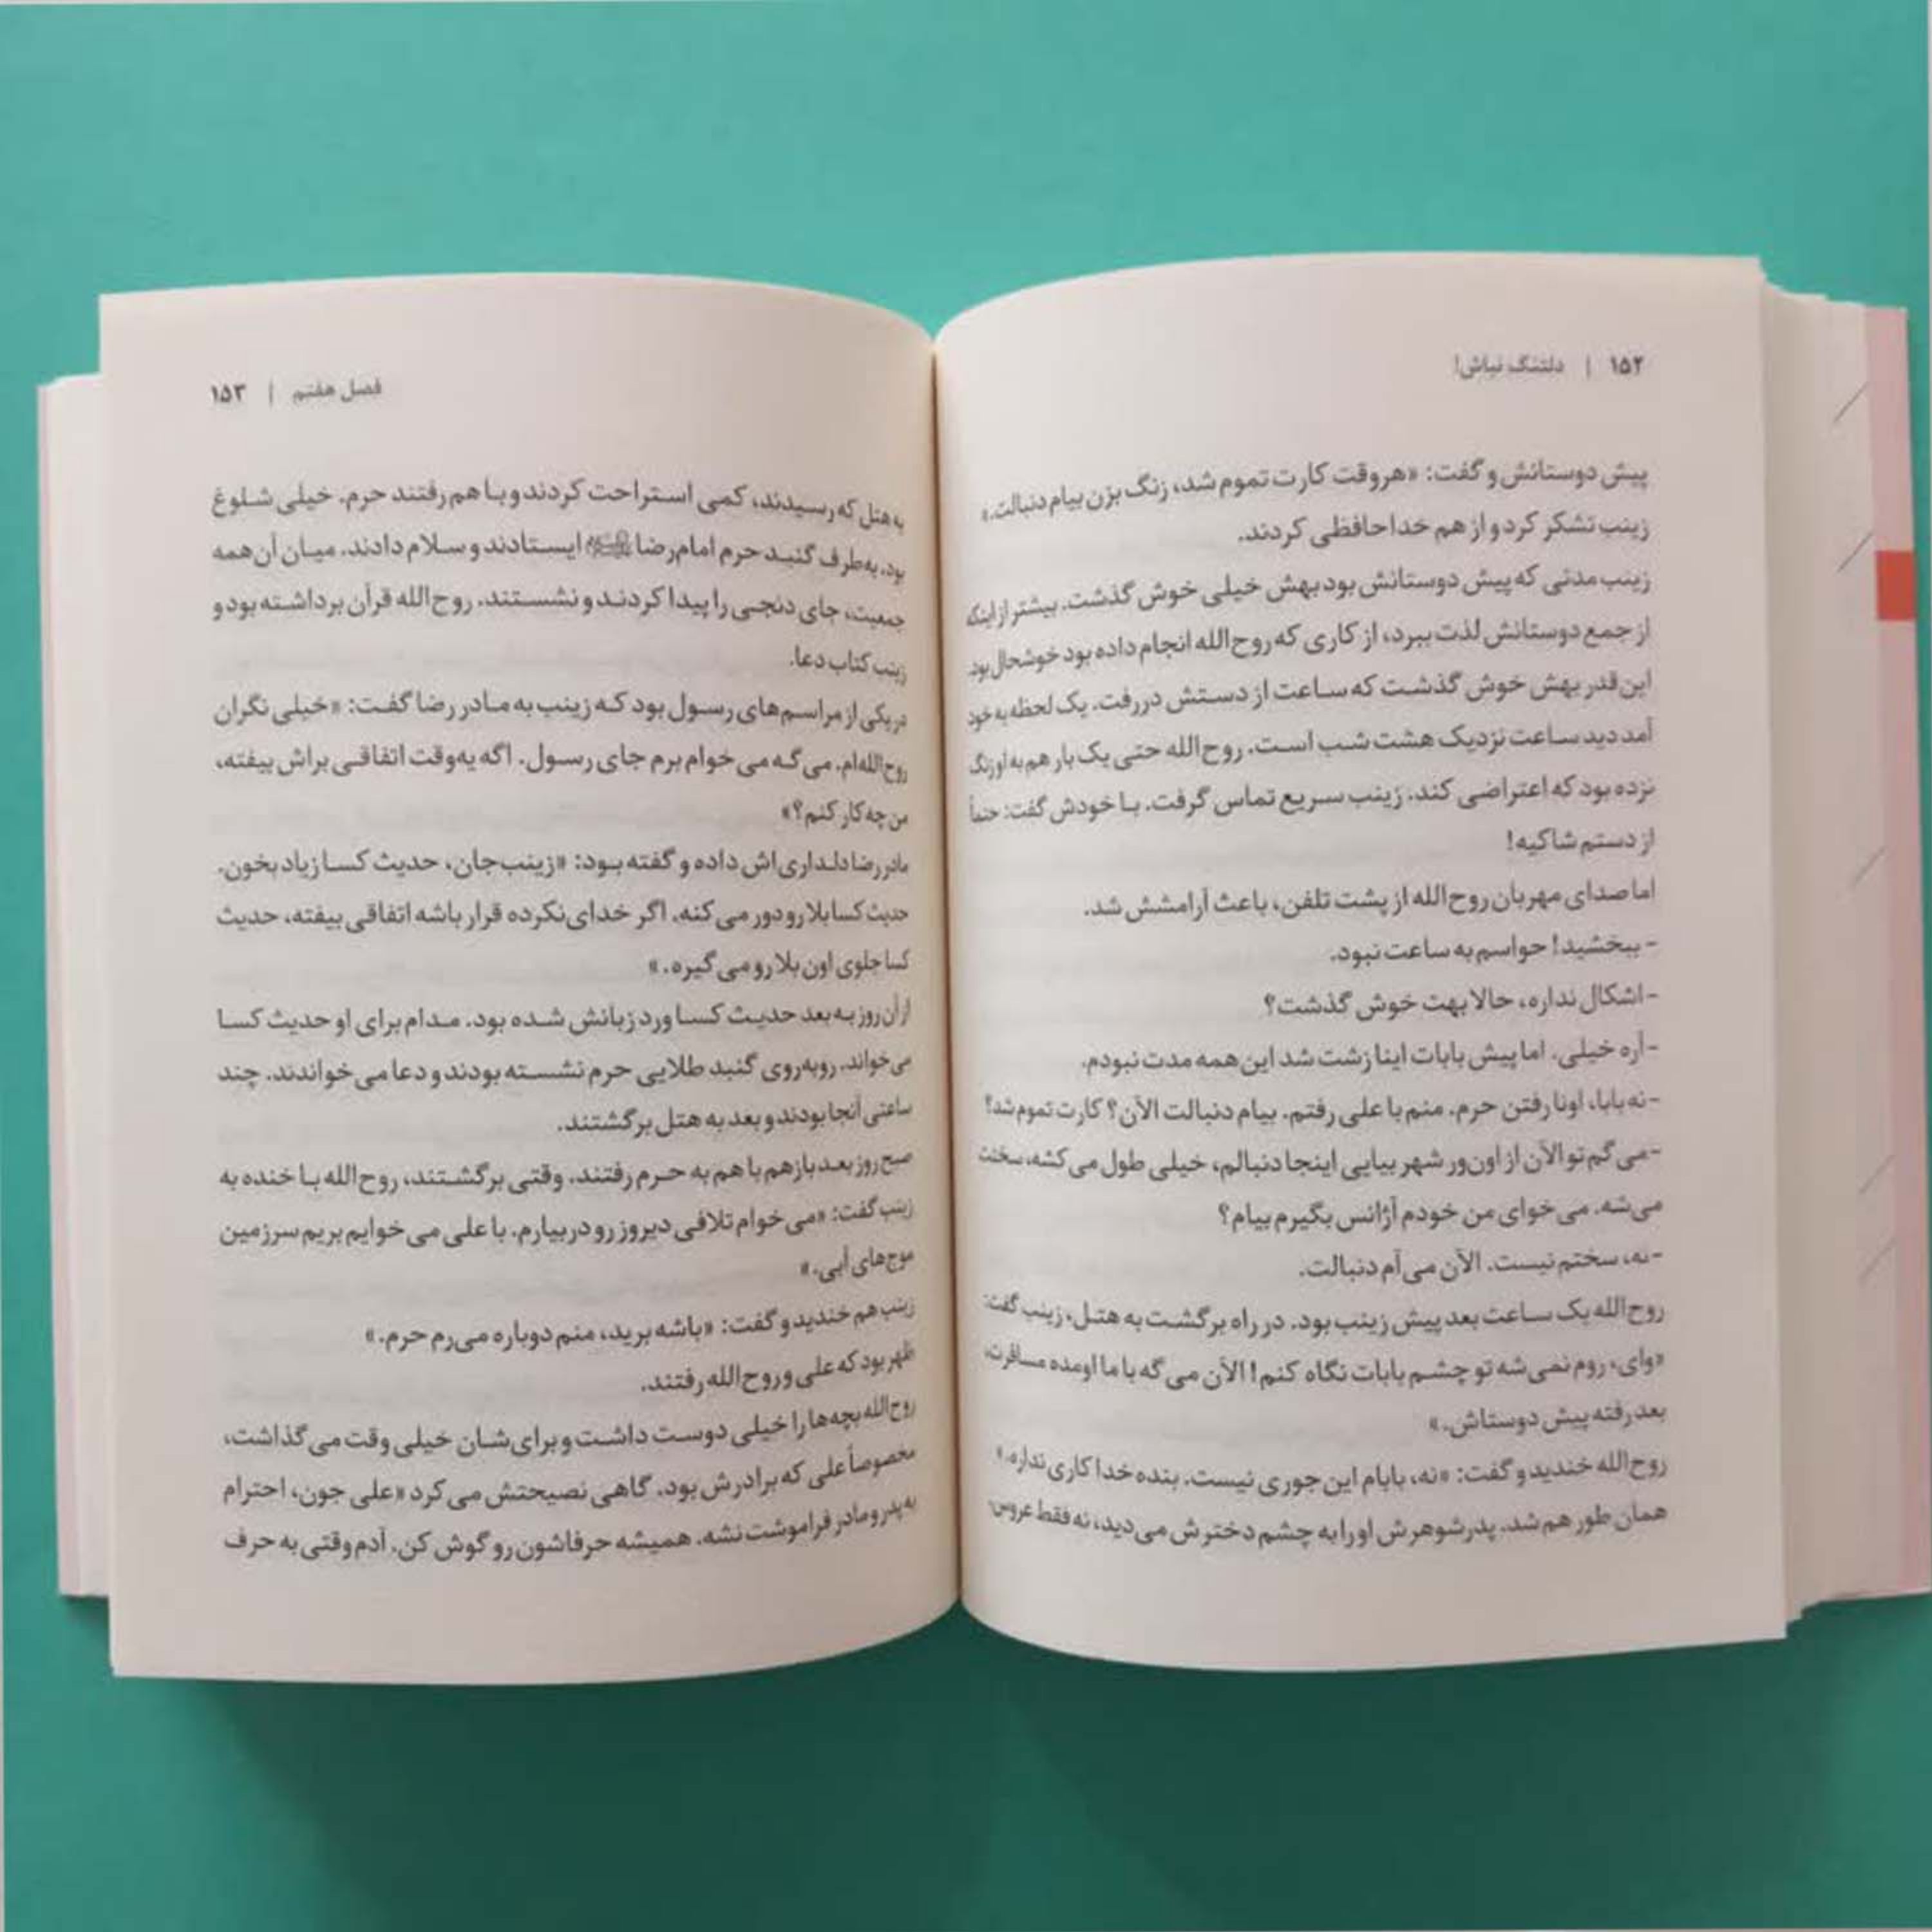 ۱۵۲ | دلتنگ نباش!
پیش دوستانش و گفت: «هروقت کارت تموم شد، زنگ بزن بیام دنبالت.»
زینب تشکر کرد و از هم خداحافظی کردند.
زینب مدتی که پیش دوستانش بود بهش خیلی خوش گذشت. بیشتر از اینکه
از جمع دوستانش لذت ببرد، از کاری که روح‌الله انجام داده بود خوشحال بود.
این‌قدر بهش خوش گذشت که ساعت از دستش دررفت. یک لحظه به خود
آمد دید ساعت نزدیک هشت شب است. روح‌الله حتی یک بار هم به او زنگ
نزده بود که اعتراضی کند. زینب سریع تماس گرفت. با خودش گفت: حتماً
از دستم شاکیه!
اما صدای مهربان روح‌الله از پشت تلفن، باعث آرامشش شد.
- ببخشید! حواسم به ساعت نبود.
- اشکال نداره، حالا بهت خوش گذشت؟
- آره خیلی. اما پیش بابات اینا زشت شد این همه مدت نبودم.
- نه بابا، اونا رفتن حرم. منم با علی رفتم. بیام دنبالت الآن؟ کارت تموم شد؟
- می‌گم تو الآن از اون‌ور شهر بیایی اینجا دنبالم، خیلی طول می‌کشه، سختت
می‌شه. می‌خوای من خودم آژانس بگیرم بیام؟
- نه، سختم نیست. الآن می‌آم دنبالت.
روح‌الله یک ساعت بعد پیش زینب بود. در راه برگشت به هتل، زینب گفت:
«وای، روم نمی‌شه تو چشم بابات نگاه کنم! الآن می‌گه با ما اومده مسافرت،
بعد رفته پیش دوستاش.»
روح‌الله خندید و گفت: «نه، بابام این‌جوری نیست. بنده خدا کاری نداره.»
همان طور هم شد. پدرشوهرش او را به چشم دخترش می‌دید، نه فقط عروس.
فصل هفتم | ۱۵۳
به هتل که رسیدند، کمی استراحت کردند و با هم رفتند حرم. خیلی شلوغ
بود. به‌طرف گنبد حرم امام رضا ایستادند و سلام دادند. میان آن همه
جمعیت، جای دنجی را پیدا کردند و نشستند. روح‌الله قرآن برداشته بود و
زینب کتاب دعا.
در یکی از مراسم‌های رسول بود که زینب به مادر رضا گفت: «خیلی نگران
روح‌الله‌ام. می‌گه می‌خوام برم جای رسول. اگه یه‌وقت اتفاقی براش بیفته،
من چه کار کنم؟»
مادر رضا دلداری‌اش داده و گفته بود: «زینب‌جان، حدیث کسا زیاد بخون.
حدیث کسا بلا رو دور می‌کنه. اگر خدای نکرده قرار باشه اتفاقی بیفته، حدیث
کسا جلوی اون بلا رو می‌گیره.»
از آن روز به بعد حدیث کسا ورد زبانش شده بود. مدام برای او حدیث کسا
می‌خواند. روبه‌روی گنبد طلایی حرم نشسته بودند و دعا می‌خواندند. چند
ساعتی آنجا بودند و بعد به هتل برگشتند.
صبح روز بعد باز هم با هم به حرم رفتند. وقتی برگشتند، روح‌الله با خنده به
زینب گفت: «می‌خوام تلافی دیروز رو دربیارم. با علی می‌خوایم بریم سرزمین
موج‌های آبی.»
زینب هم خندید و گفت: «باشه برید، منم دوباره می‌رم حرم.»
ظهر بود که علی و روح‌الله رفتند.
روح‌الله بچه‌ها را خیلی دوست داشت و برای‌شان خیلی وقت می‌گذاشت،
مخصوصاً علی که برادرش بود. گاهی نصیحتش می‌کرد «علی جون، احترام
به پدر و مادر فراموشت نشه. همیشه حرفاشون رو گوش کن. آدم وقتی به حرف